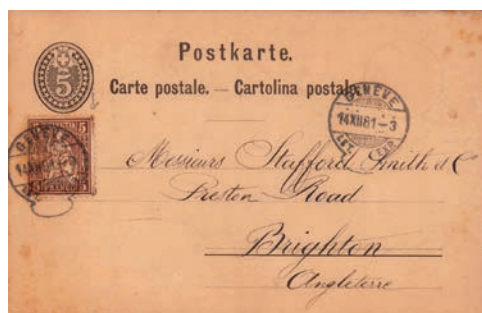 Postkarte.
5
Carte postale. — Cartolina postale.
GENÈVE
14 XII 81 — 3
5 5
FRANCO
GENÈVE
14 XII 81
Messieurs Stafford Smith & C
Preston Road
Brighton
Angleterre